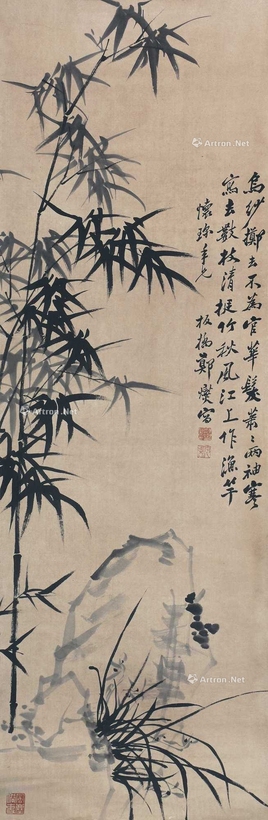 烏紗擲去不為官華髮蕭〻兩袖寒
寫去數枝清挺竹秋風江上作漁竿
懷珍年兄 板橋鄭燮寫
Artron.Net
Artron.Net
Artron.Net